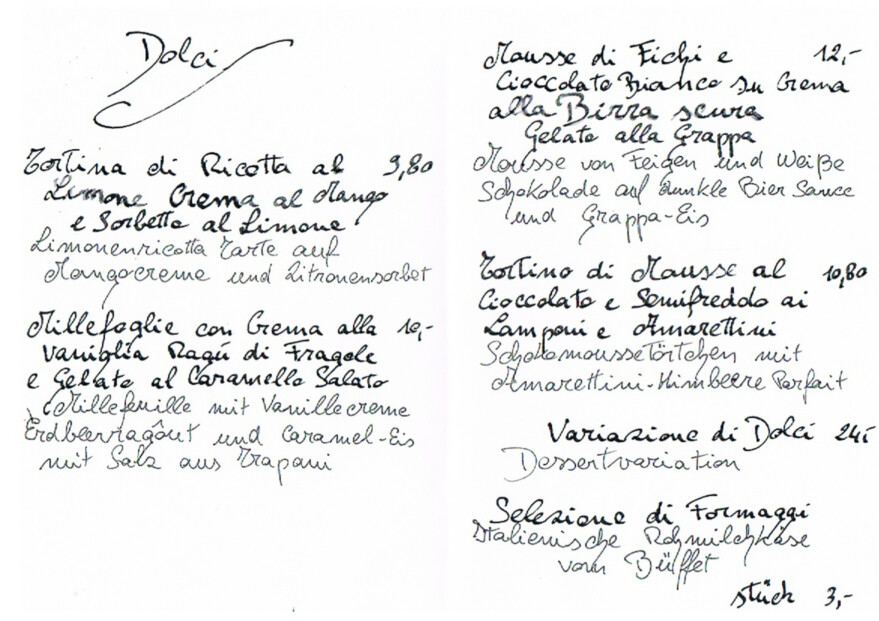 Dolci
Tortina di Ricotta al 9,80
Limone Crema al Mango
e Sorbetto al Limone
Limonenricotta Tarte auf
Mangocreme und Zitronensorbet
Millefoglie con Crema alla 10,-
Vaniglia Ragú di Fragole
e Gelato al Caramello Salato
Millefeuille mit Vanillecreme
Erdbeerragôut und Caramel-Eis
mit Salz aus Trapani
Mousse di Fichi e 12,-
Cioccolato Bianco su Crema
alla Birra scura
Gelato alla Grappa
Mousse von Feigen und Weiße
Schokolade auf dunkle Bier Sauce
und Grappa-Eis
Tortino di Mousse al 10,80
Cioccolato e Semifreddo ai
Lamponi e Amarettini
Schokomoussetörtchen mit
Amarettini-Himbeere Parfait
Variazione di Dolci 24,-
Dessertvariation
Selezione di Formaggi
Italienische Rohmilchkäse
vom Büffet
stück 3,-